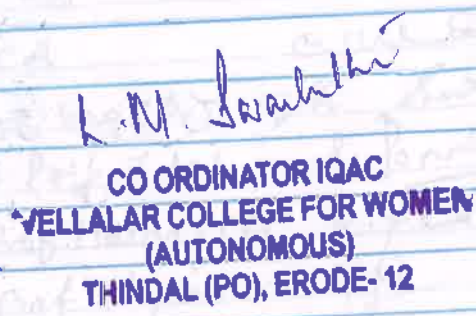 L.M.
CO ORDINATOR IQAC
VELLALAR COLLEGE FOR WOMEN
(AUTONOMOUS)
THINDAL (PO), ERODE- 12